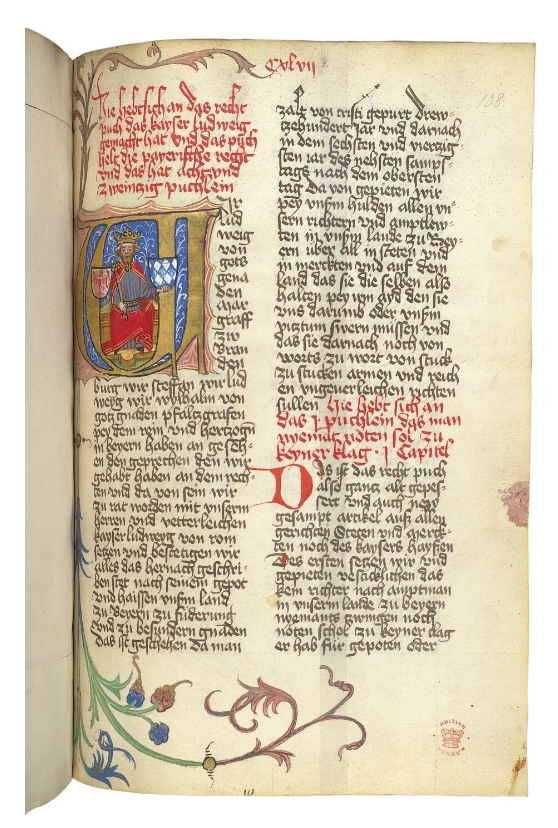 Cxlvii
108
Hie hebt sich an das recht
puch das kayser ludweig
gemacht hat vnd das puch
helt die payerische recht
vnd das hat acht vnd
zweinczig puchlein
Wir
lud
weig
von
gots
gena
den
mar
graff
zw
Bran
den
burg wir steffan wir lud
weyg wir wylhalm von
gotz gnaden pfaltzgrafen
pey dem rein vnd hertzogn
in beyern haben an gesech-
en den geprechen den wir
gehabt haben an dem rech-
ten vnd da von sein wir
zu rat worden mit vnserm
herren vnd vetterleichen
kayser ludweig von rom
setzen vnd bestetigen wir
alles das hernach geschri-
ben stet nach seinem gepot
vnd haissen vnserm land
zu Beyern zu fuderung
vnd zu besundern gnaden
das ist geschehen da man
zalt von cristi gepurt drew-
tzehundert Jar vnd darnach
in dem sechsten vnd viertzig-
sten iar des nehsten samps-
tags nach dem obersten
tag Da von gepieten wir
pey vnsern hulden allen vn-
sern richtern vnd amptlew-
ten in vnserm lande zu Bey-
ern vber all in steten vnd
in merckten vnd auf dem
land das sie die selben also
halten pey dem ayd den sie
vns darumb oder vnserm
viztum swern müssen vnd
das sie darnach noch von
worts zu wort von stuck
zu stucken armen vnd reich
en vngeuerleichen richten
sullen Hie hebt sich an
das j puchlein das man
nyemant noten sol zu
keyner klag · j Capitel
Das ist das recht puch
also gantz alt gepes-
sert vnd auch new
gesampt artikel auß allen
gerichten Steten vnd merck-
ten noch des kaysers hayssen
Des ersten setzen wir vnd
gepieten vestickleichen das
kein richter nach amptman
in vnserm lande zu beyern
nyemants zwingen noch
noten schol zu keyner clag
er hab für gepoten oder